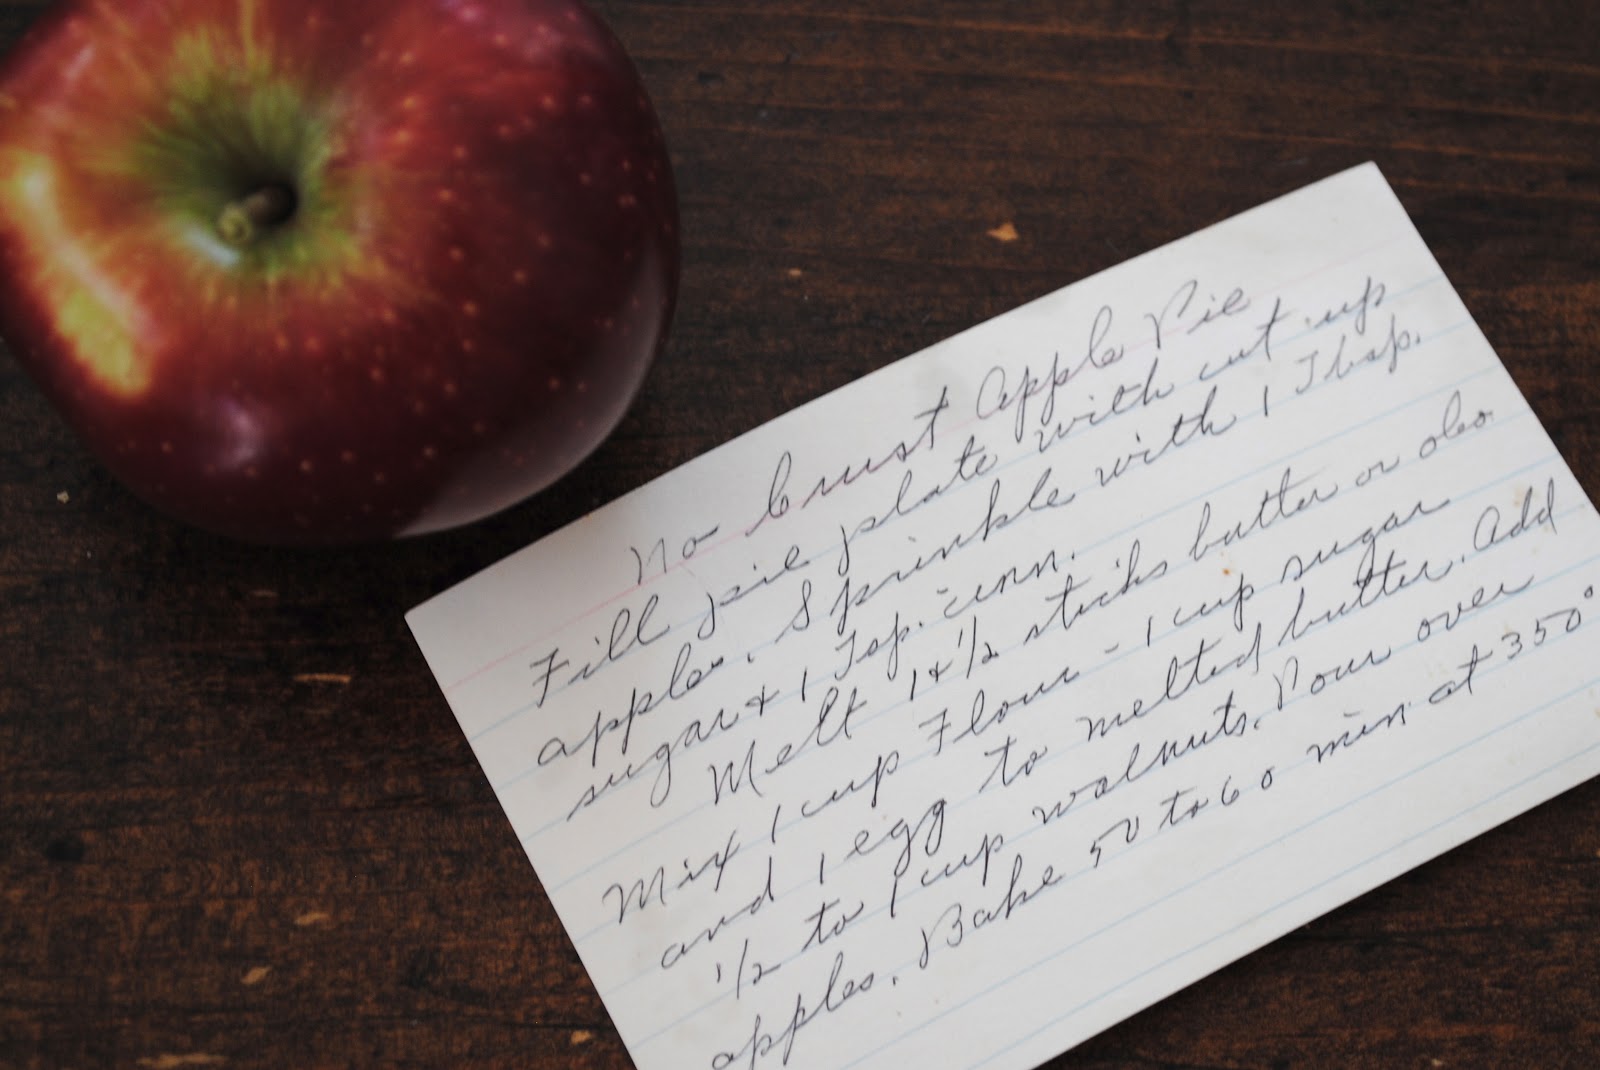 No Crust Apple Pie
Fill pie plate with cut up
apples. Sprinkle with 1 Tbsp.
sugar & 1 Tsp. cinn.
Melt 1 & 1/2 sticks butter or oleo
Mix 1 cup Flour - 1 cup sugar
and 1 egg to melted butter. Add
1/2 to 1 cup walnuts. Pour over
apples. Bake 50 to 60 min. at 350°